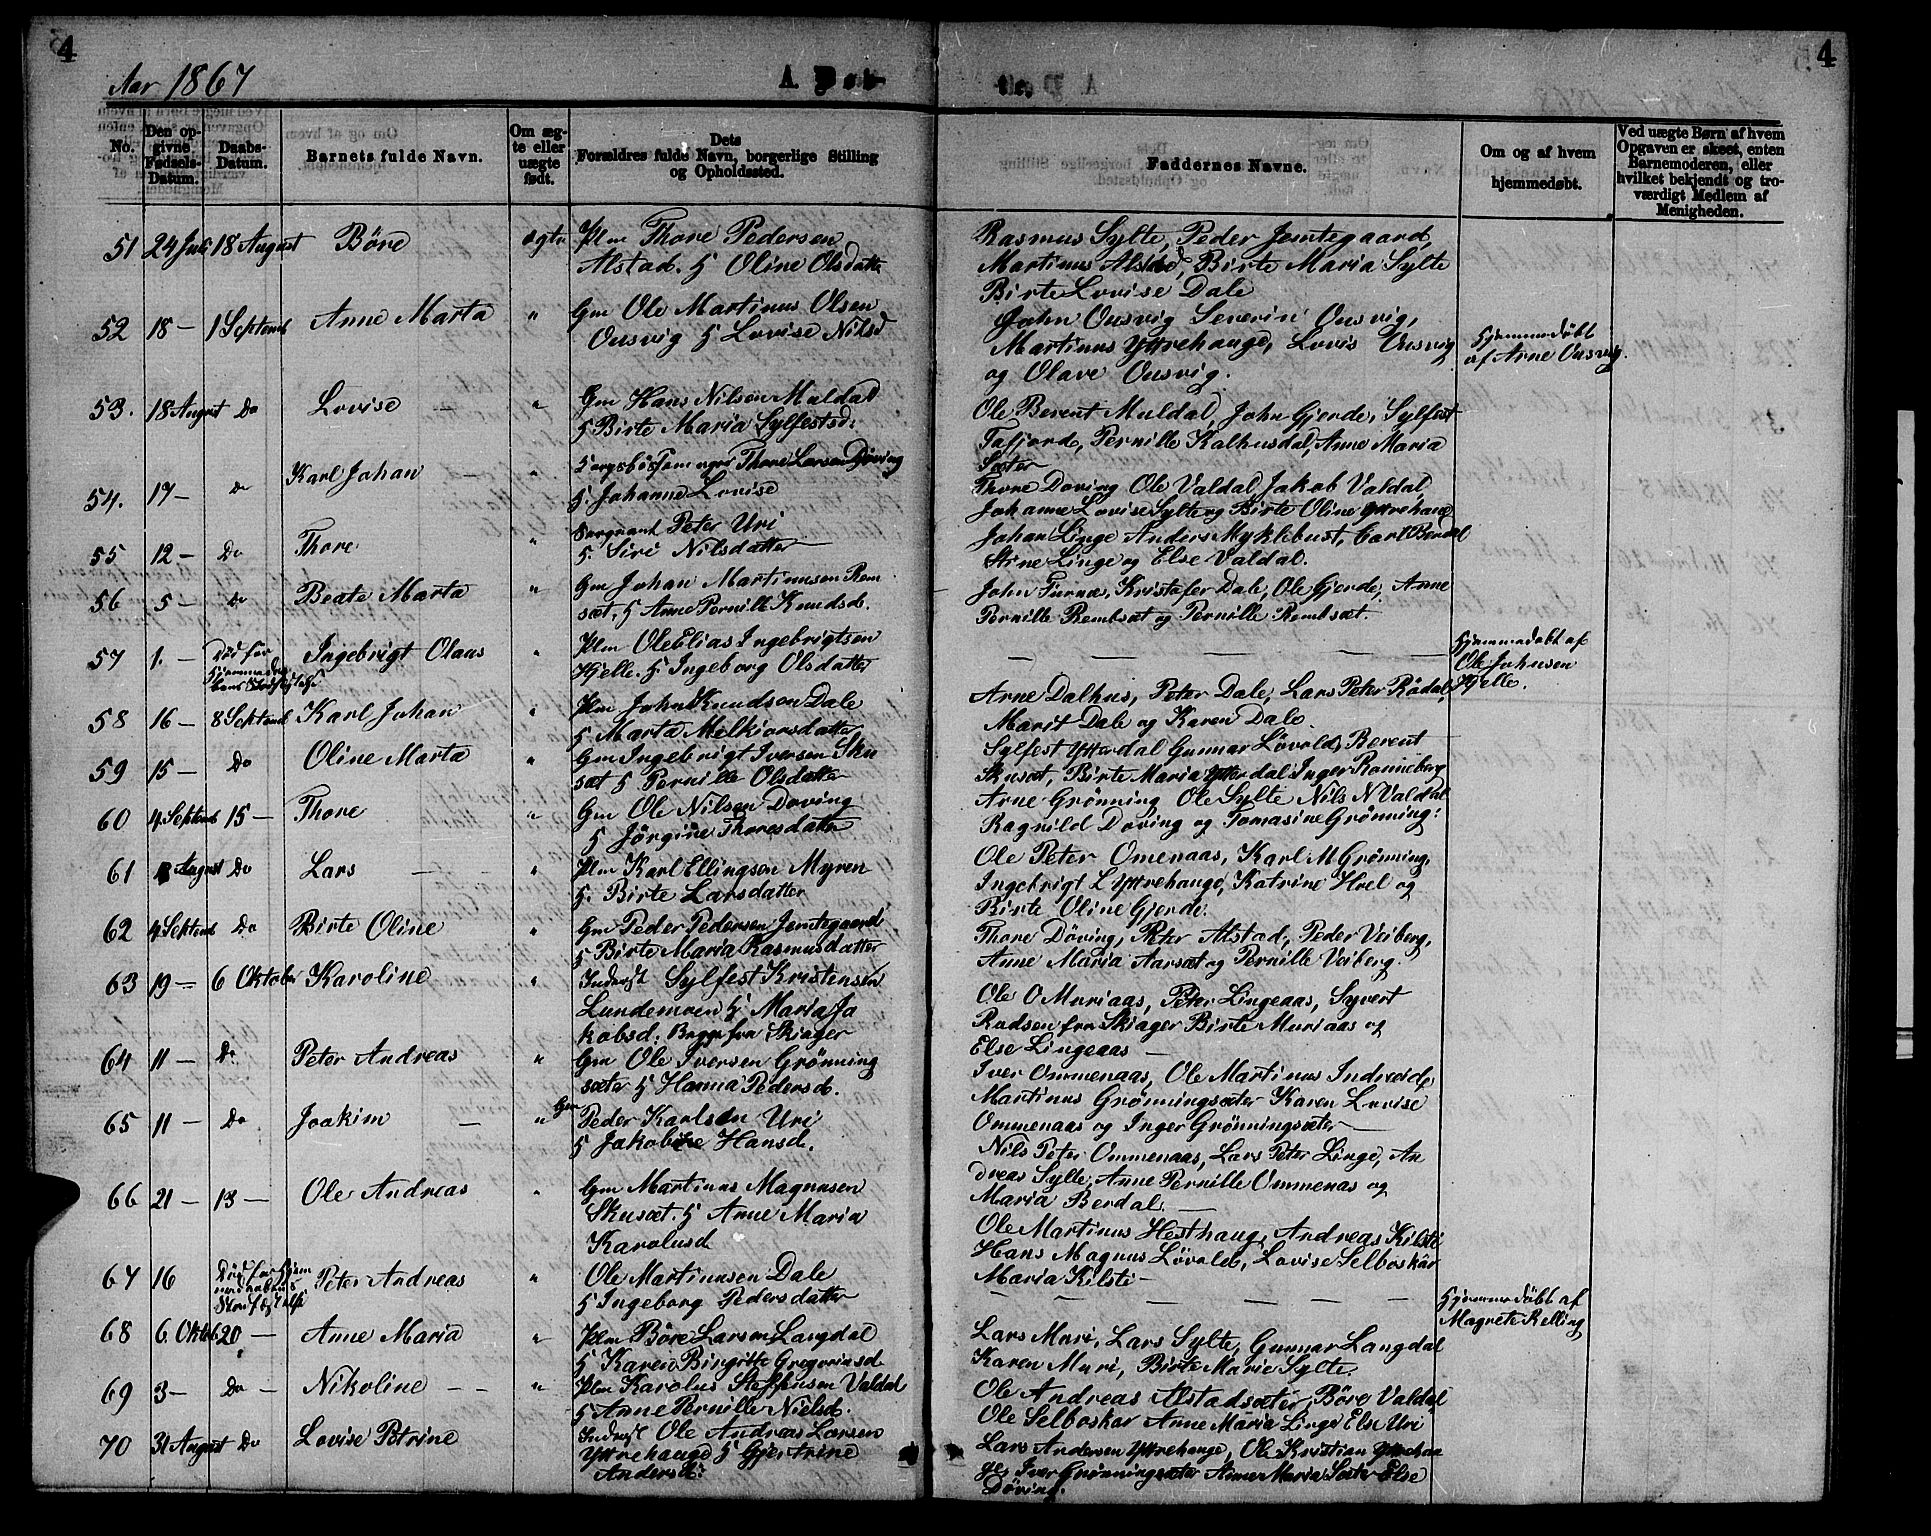 4
4
Aar 1867
A. Døb-
No.
Den op-
givne
Fødsels-
Datum.
Daabs-
Datum.
Barnets fulde Navn.
Om æg-
te eller
uægte
født.
Dets
Forældres fulde Navn, borgerlige Stilling
og Opholdssted.
Faddernes Navne.
Om og af hvem
hjemmedøbt.
Ved uægte Børn af hvem
Opgaven er skeet, enten
Barnemoderen, eller
hvilket bekjendt og tro-
værdigt Medlem af
Menigheden.
51 24 Juli 18 August Böre ægte Plm Thore Pedersen
Alstad. H Oline Olsdatter
Rasmus Sylte, Peder Jemtegaard,
Martinus Alstad, Birte Maria Sylte
Birte Lovise Dale
52 18 — 1 Septemb Anne Marta " Gm Ole Martinus Olsen
Ousvig H Lovise Nilsd
John Ousvig Severin Ousvig,
Martinus Yttrehauge, Lovis Ousvig
og Olave Ousvig.
Hjemmedöbt
af Arne Ousvig.
53. 18 August Do Lovise — " Gm Hans Nilsen Muldal
H Birte Maria Sylfestsd.
Ole Berent Muldal, John Gjerde, Sylfest
Tafjorde, Pernille Kalhusdal, Anne Maria
Sæter
54. 17 — Do Karl Johan — " Thore Larsen Döving
H Johanne Lovise
Thore Doving Ole Valdal, Jakob Valdal,
Johanne Lovise Sylte og Birte Oline Yttrehaug
55 12 — Do Thore " Sergeant Peter Uri
H. Siri Nilsdatter —
Johan Linge Anders Myklebust, Carl Berdal
Stine Linge og Else Valdal.
56 5 — Do Beate Marta " Gm Johan Martinusen Rem
sæt, H Anne Pernille Knudsd.
John Furnæs, Kristafer Dale, Ole Gjerde, Anne
Pernille Rembsæt og Pernille Rembsæt.
57 1. — Död for
Hjemmedaa
bens Stadfæstelse
Ingebrigt Olaus " Plm Ole Elias Ingebrigtsen
Hjelle. H Ingeborg Olsdatter
— — — — — —
Hjemmedöbt af
Ole Johnsen
Hjelle.
58 16 — 8 Septemb Karl Johan " Plm John Knudsen Dale
H Marta Melkiorsdatter
Arne Dalhus, Peter Dale, Lars Peter Rödal,
Marit Dale og Karen Dale.
59 15 — Do Oline Marta " Gm Ingebrigt Iversen Sku
sæt H Pernille Olsdatter
Sylfest Ytterdal Gunnar Lövold, Berent
Skusæt, Birte Maria Ytterdal Inger Ronneberg
60 4 Septemb 15 — Thore " Gm Ole Nilsen Doving
H Jörgine Thoresdatter
Arne Grönning Ole Sylte Nils N Valdal
Ragnild Doving og Tomasine Grönning.
61 August Do Lars — — " Plm Karl Ellingsen Myren
H. Birte Larsdatter
Ole Peter Omenaas, Karl M Grønning,
Ingebrigt L Yttrehauge, Katrine Hoel og
Birte Oline Gjerde.
62 4 Septemb Do Birte Oline " Gm Peder Pedersen Jemtegaard
H Birte Maria Rasmusdatter
Thore Döving, Peter Alstad, Peder Veiberg,
Anne Maria Aarsæt og Pernille Veiberg.
63 19 — 6 Oktober Karoline " Inderst Sylfest Kristensen
Lundemoen H Maria Ja
kobsd. Begge fra Skiager
Ole O Muriaas, Peter Lingeaas, Syvert
Radsen fra Skiager Birte Muriaas og
Else Lingeaas —
64 11 — Do Peter Andreas " Gm Ole Iversen Grönning
sæter H Hanna Pedersd.
Iver Ommenaas, Ole Martinus Indreide,
Martinus Grönningsæter Karen Lovise
Ommenaas og Inger Grönningsæter —
65 11 — Do Joakim — " Gm Peder Karlsen Uri
H Jakobine Hansd.
Nils Peter Ommenaas, Lars Peter Linge, An
dreas Sylte, Anne Pernille Ommenas og
Maria Berdal. —
66 21 — 13 — Ole Andreas " Gm Martinus Magnusen
Skusæt. H Anne Maria
Karolusd
Ole Martinus Hesthaug, Andreas Kilsti
Hans Magnus Lövold, Lovise Selboskår
Maria Kilsti —
67 16 Död for Hjem
medaabens
Stadfæstelse
Peter Andreas " Ole Martinusen Dale
H Ingeborg Pedersdatter
— — — — — —
Hjemmedöbt af
Magrete Relling
68 6. Oktob 20 — Anne Maria " Plm Böre Larsen Langdal
H Karen Birgitte Gregoriusd
Lars Muri, Lars Sylte, Gunnar Langdal
Karen Muri, Birte Marie Sylte.
69 3 — Do — Nikoline — — " Plm Karolus Steffensen Valdal
H Anne Pernille Nielsd.
Ole Andreas Alstadsæter, Böre Valdal
Ole Selboskar Anne Maria Linge Else Uri
70 31 August Do Lovise Petrine Inderst Ole Andreas Larsen
Yttrehauge H Gjertrine
Andersd.
Lars Andersen Yttrehauge, Ole Kristian Yttrehau
ge, Iver Grönningsæter Anne Maria Sæter Else
Döving.